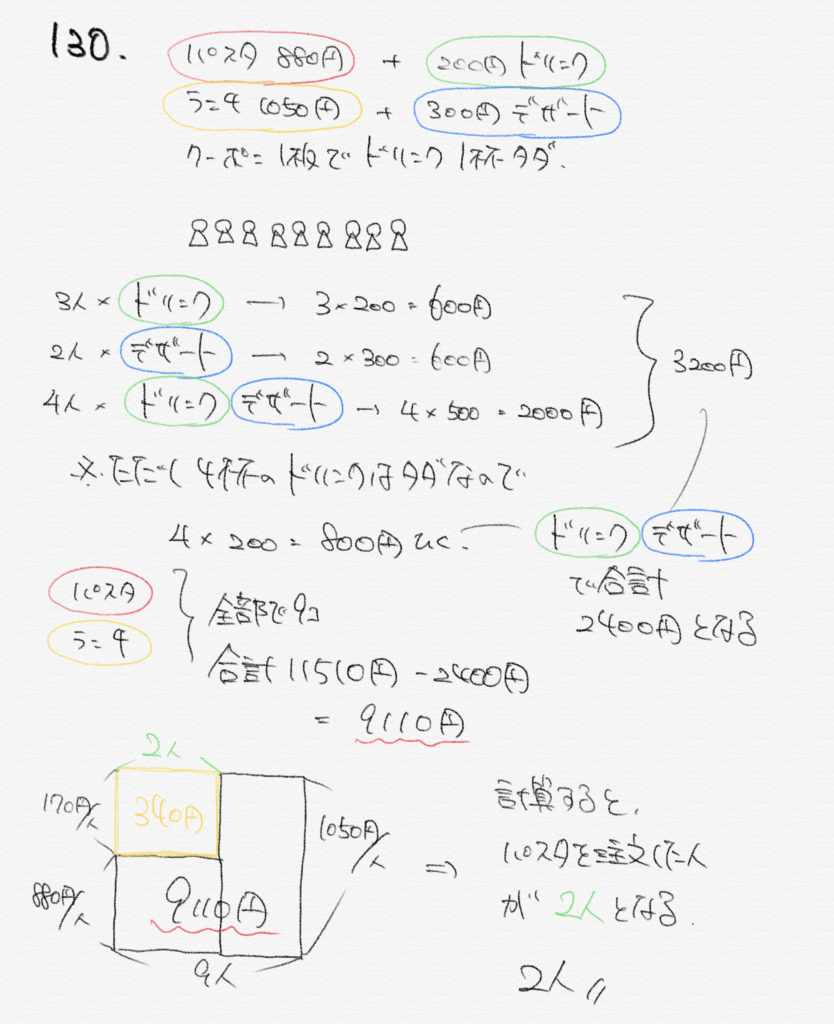 130.
パスタ 880円 + 200円 ドリンク
ランチ 1050円 + 300円 デザート
クーポン1枚で ドリンク1杯タダ.
3人 × ドリンク → 3×200=600円
2人 × デザート → 2×300=600円
4人 × ドリンク デザート → 4×500=2000円
3200円
※ただし 4杯のドリンクはタダなので
4×200=800円 ひく.
ドリンク デザート
で合計
2400円となる
パスタ
ランチ
全部で9コ
合計 11510円 - 2400円
= 9110円
2人
170円/人
340円
1050円/人
880円/人
9110円
9人
⇒
計算すると,
パスタを注文した人
が 2人となる.
2人〃